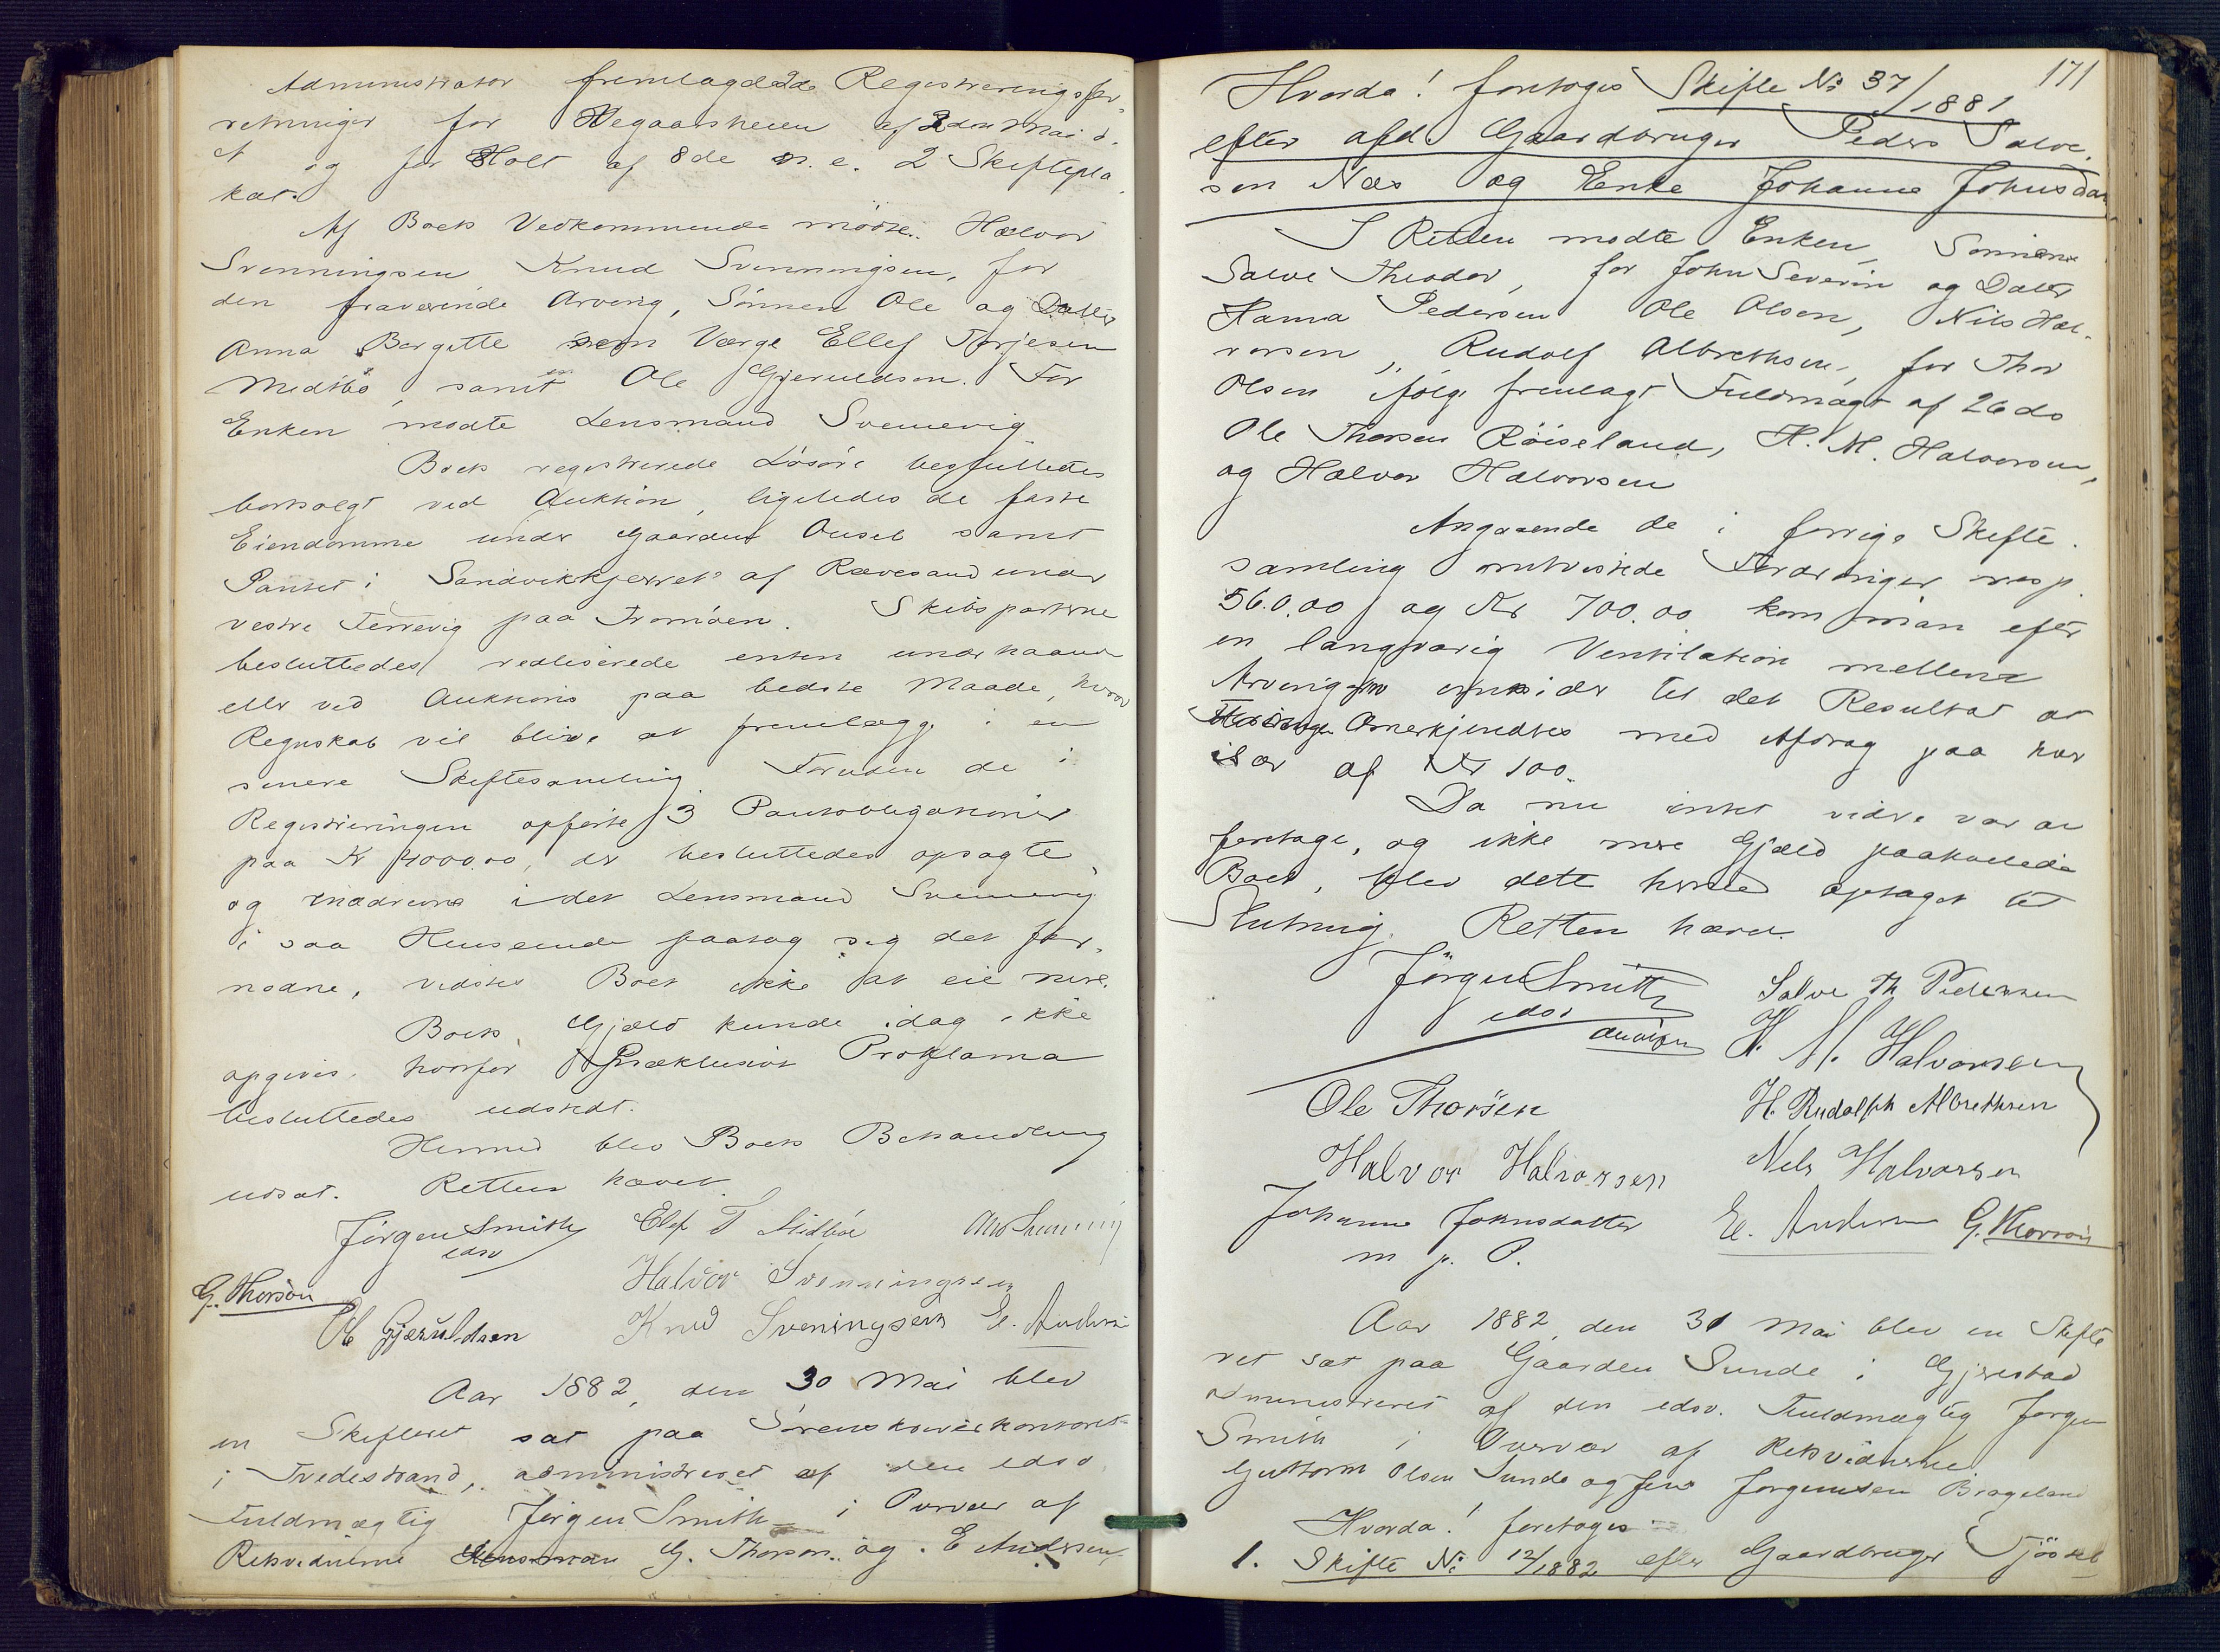 Administrator fremlagde 2de Registreringsfor-
retninger for Vegaarsheien af 2den Mai d.
A og for Holt af 8de s. e. 2 Skiftepla-
kat.
Af Boets Vedkommende mødte Halvor
Svenningsen Knud Svenningsen, for
den fraværende Arving, Sønnen Ole og Datter
Anna Bergitte som Værge Ellef Terjesen
Midtbø, samt Ole Gjeruldsen. For
Enken mødte Lensmand Svenevig
Boets registrerede Løsøre besluttedes
bortsolgt ved Auktion, ligeledes de faste
Eiendomme under Gaarden Ousel samt
Pantet i Sandvikkjerret af Rævesand under
vestre Tennevig paa Tromøen. Skibsparterne
besluttedes realiserede enten underhaanden
eller ved Auktions paa bedste Maade, hvorover
Regnskab vil blive at fremlægge i en
senere Skiftesamling Foruden de i
Registreringen opførte 3 Pantobligationer
paa Kr 4000.00, der besluttedes opsagte
og inddrevne idet Lensmand Svenevig
i saa Henseende paatog sig det for-
nødne, vidstes Boet ikke at eie mere.
Boets Gjæld kunde idag ikke
opgives hvorfor Præklusivt Proklama
besluttedes udstedt.
Hermed blev Boets Behandling
udsat. Retten hævet
Jørgen Smith Elef T Midbøe
edsv
Halvor Svenningsen
G. Thorson
Ole Gjeruldsen Knud Sveningsen E. Andersen
Aar 1882, den 30 Mai blev
en Skifteret sat paa Sorenskriverkontoret
i Tvedestrand, administreret af den edsv
Fuldmægtig Jørgen Smith i Overvær af
Retsvidnerne G. Thorson og E Andersen
171
Hvorda! foretoges Skifte No 37/1881
efter afd. Gaardbruger Peder Salve-
sen Næs og Enke Johanne Johnsdatter
I Retten mødte Enken, Sønnerne
Salve Theodor, for John Severin og Datter
Hanna Pedersen Ole Olsen, Nils Hal-
vorsen, Rudolf Albrethsen, for Thor
Olsen ifølge fremlagt Fuldmagt af 26 ds
Ole Thorsen Røiseland, H. M. Halvorsen,
og Halvor Halvorsen
Angaaende de i forrige Skifte-
samling omtvistede Fordringer resp.
560.00 og Kr 700.00 kom man efter
en langvarig Ventilation mellem
Arvingerne omsider til det Resultat at
Anerkjendtes med Afdrag paa hver
især af Kr 100.
Da nu intet videre var at
foretage, og ikke mere Gjæld paahvilede
Boet, blev dette hermed optaget til
Slutning. Retten hævet.
Jörgen Smith Salve Th Pedersen
edsv
H. M. Halvorsen
Ole Thorsen H. Rudolph Albrethsen
Halvor Halvorsen Nels Halvorsen
Johanne Johnsdatter E. Andersen G. Thorson
m p. P.
Aar 1882 den 31 Mai blev en Skifte
ret sat paa Gaarden Sunde i Gjerestad
administreret af den edsv. Fuldmægtig Jørgen
Smith i Overvær af Retsvidnerne
Guttorm Olsen Sunde og Jens Jorgensen
Hvorda! foretoges
1. Skifte No 12/1882 efter Gaardbruger